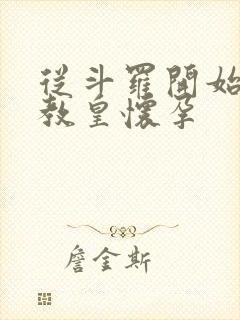 從斗羅開始
教皇懷孕
詹金斯